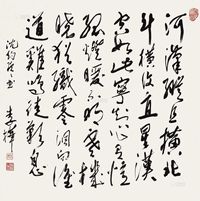 河漢縱且橫北
斗橫復直星漢
空如此寧知心有憶
孤燈曖不明寒機
曉猶織零淚向誰
道雞鳴徒歎息
沈約